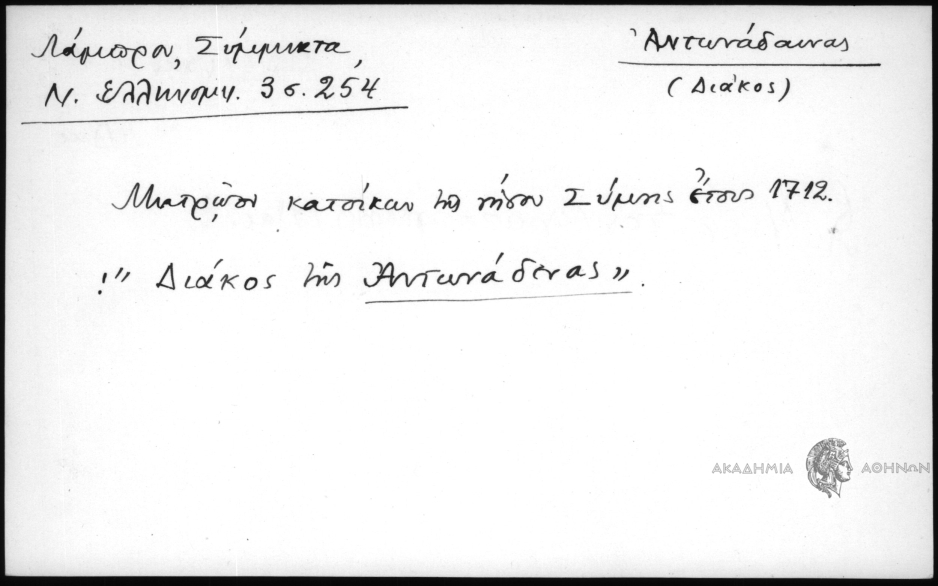 Λάμπρου, Σύμμικτα,
Ν. Ἑλληνομν. 3 σ. 254
Ἀντωνάδαινας
(Διάκος)
Μητρῷον κατοίκων τῆς νήσου Σύμης ἔτους 1712.
!" Διάκος τῆς Ἀντωνάδενας".
ΑΚΑΔΗΜΙΑ ΑΘΗΝΩΝ